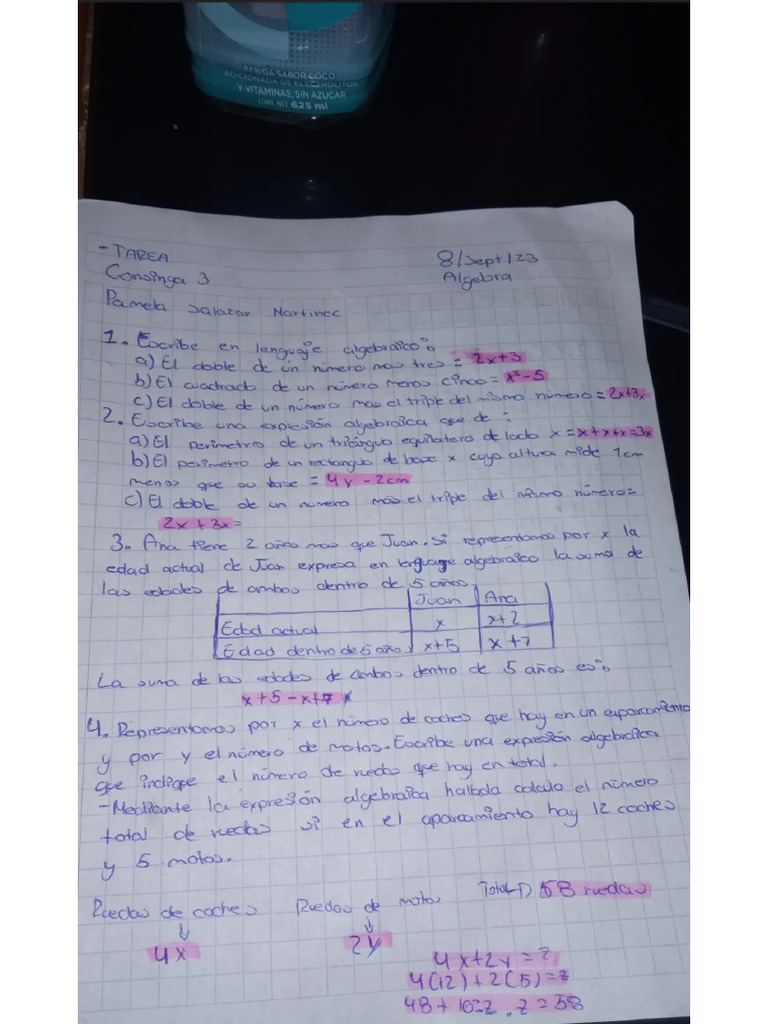 BEBIDA SABOR COCO
ADICIONADA DE ELECTROLITOS
Y VITAMINAS, SIN AZUCAR
CONT. NET. 625 ml
-TAREA
8/sept/23
Consinga 3
Algebra
Pamela Salazar Martinez
1. Escribe en lenguaje algebraico:
a) El doble de un número mas tres = 2x+3
b) El cuadrado de un número menos cinco = x²-5
c) El doble de un número mas el triple del mismo número = 2x+3x
2. Escribe una expresión algebraica que de:
a) El perimetro de un triángulo equilatero de lado x = x+x+x=3x
b) El perimetro de un rectangulo de base x cuya altura mide 1cm
menos que su base = 4y-2cm
c) El doble de un numero mas el triple del mismo número=
2x+3x=
3. Ana tiene 2 años mas que Juan. Si representamos por x la
edad actual de Juan expresa en lenguage algebraico la suma de
las edades de ambos dentro de 5 años
Juan Ana
Edad actual x x+2
Edad dentro de 5 años x+5 x+7
La suma de las edades de ambos dentro de 5 años es:
x+5-x+7
4. Representamos por x el número de coches que hay en un aparcamiento
y por y el número de motos. Escribe una expresión algebraica
que indique el número de ruedas que hay en total.
-Mediante la expresión algebraica hallada calcula el número
total de ruedas si en el aparcamiento hay 12 coches
y 5 motos.
Ruedas de coches Ruedas de motos Total 58 ruedas
4x 2y
4x+2y=z
4(12)+2(5)=z
48+10=z, z=58